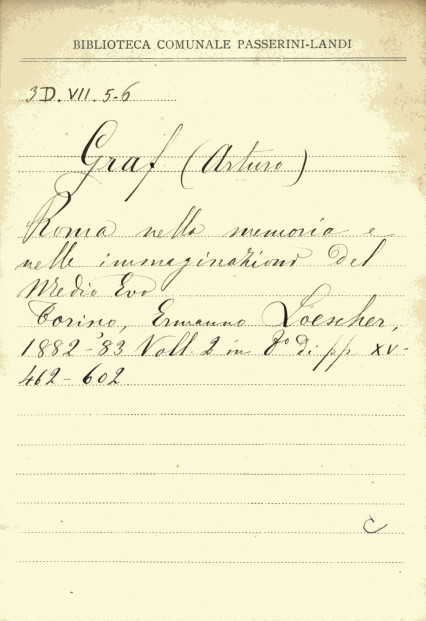 BIBLIOTECA COMUNALE PASSERINI-LANDI
3D. VII. 5-6
Graf (Arturo)
Roma nella memoria e
nelle immaginazioni del
Medio Evo
Torino, Ermanno Loescher,
1882-83 Voll. 2 in 8º di pp XV-
462-602.
C